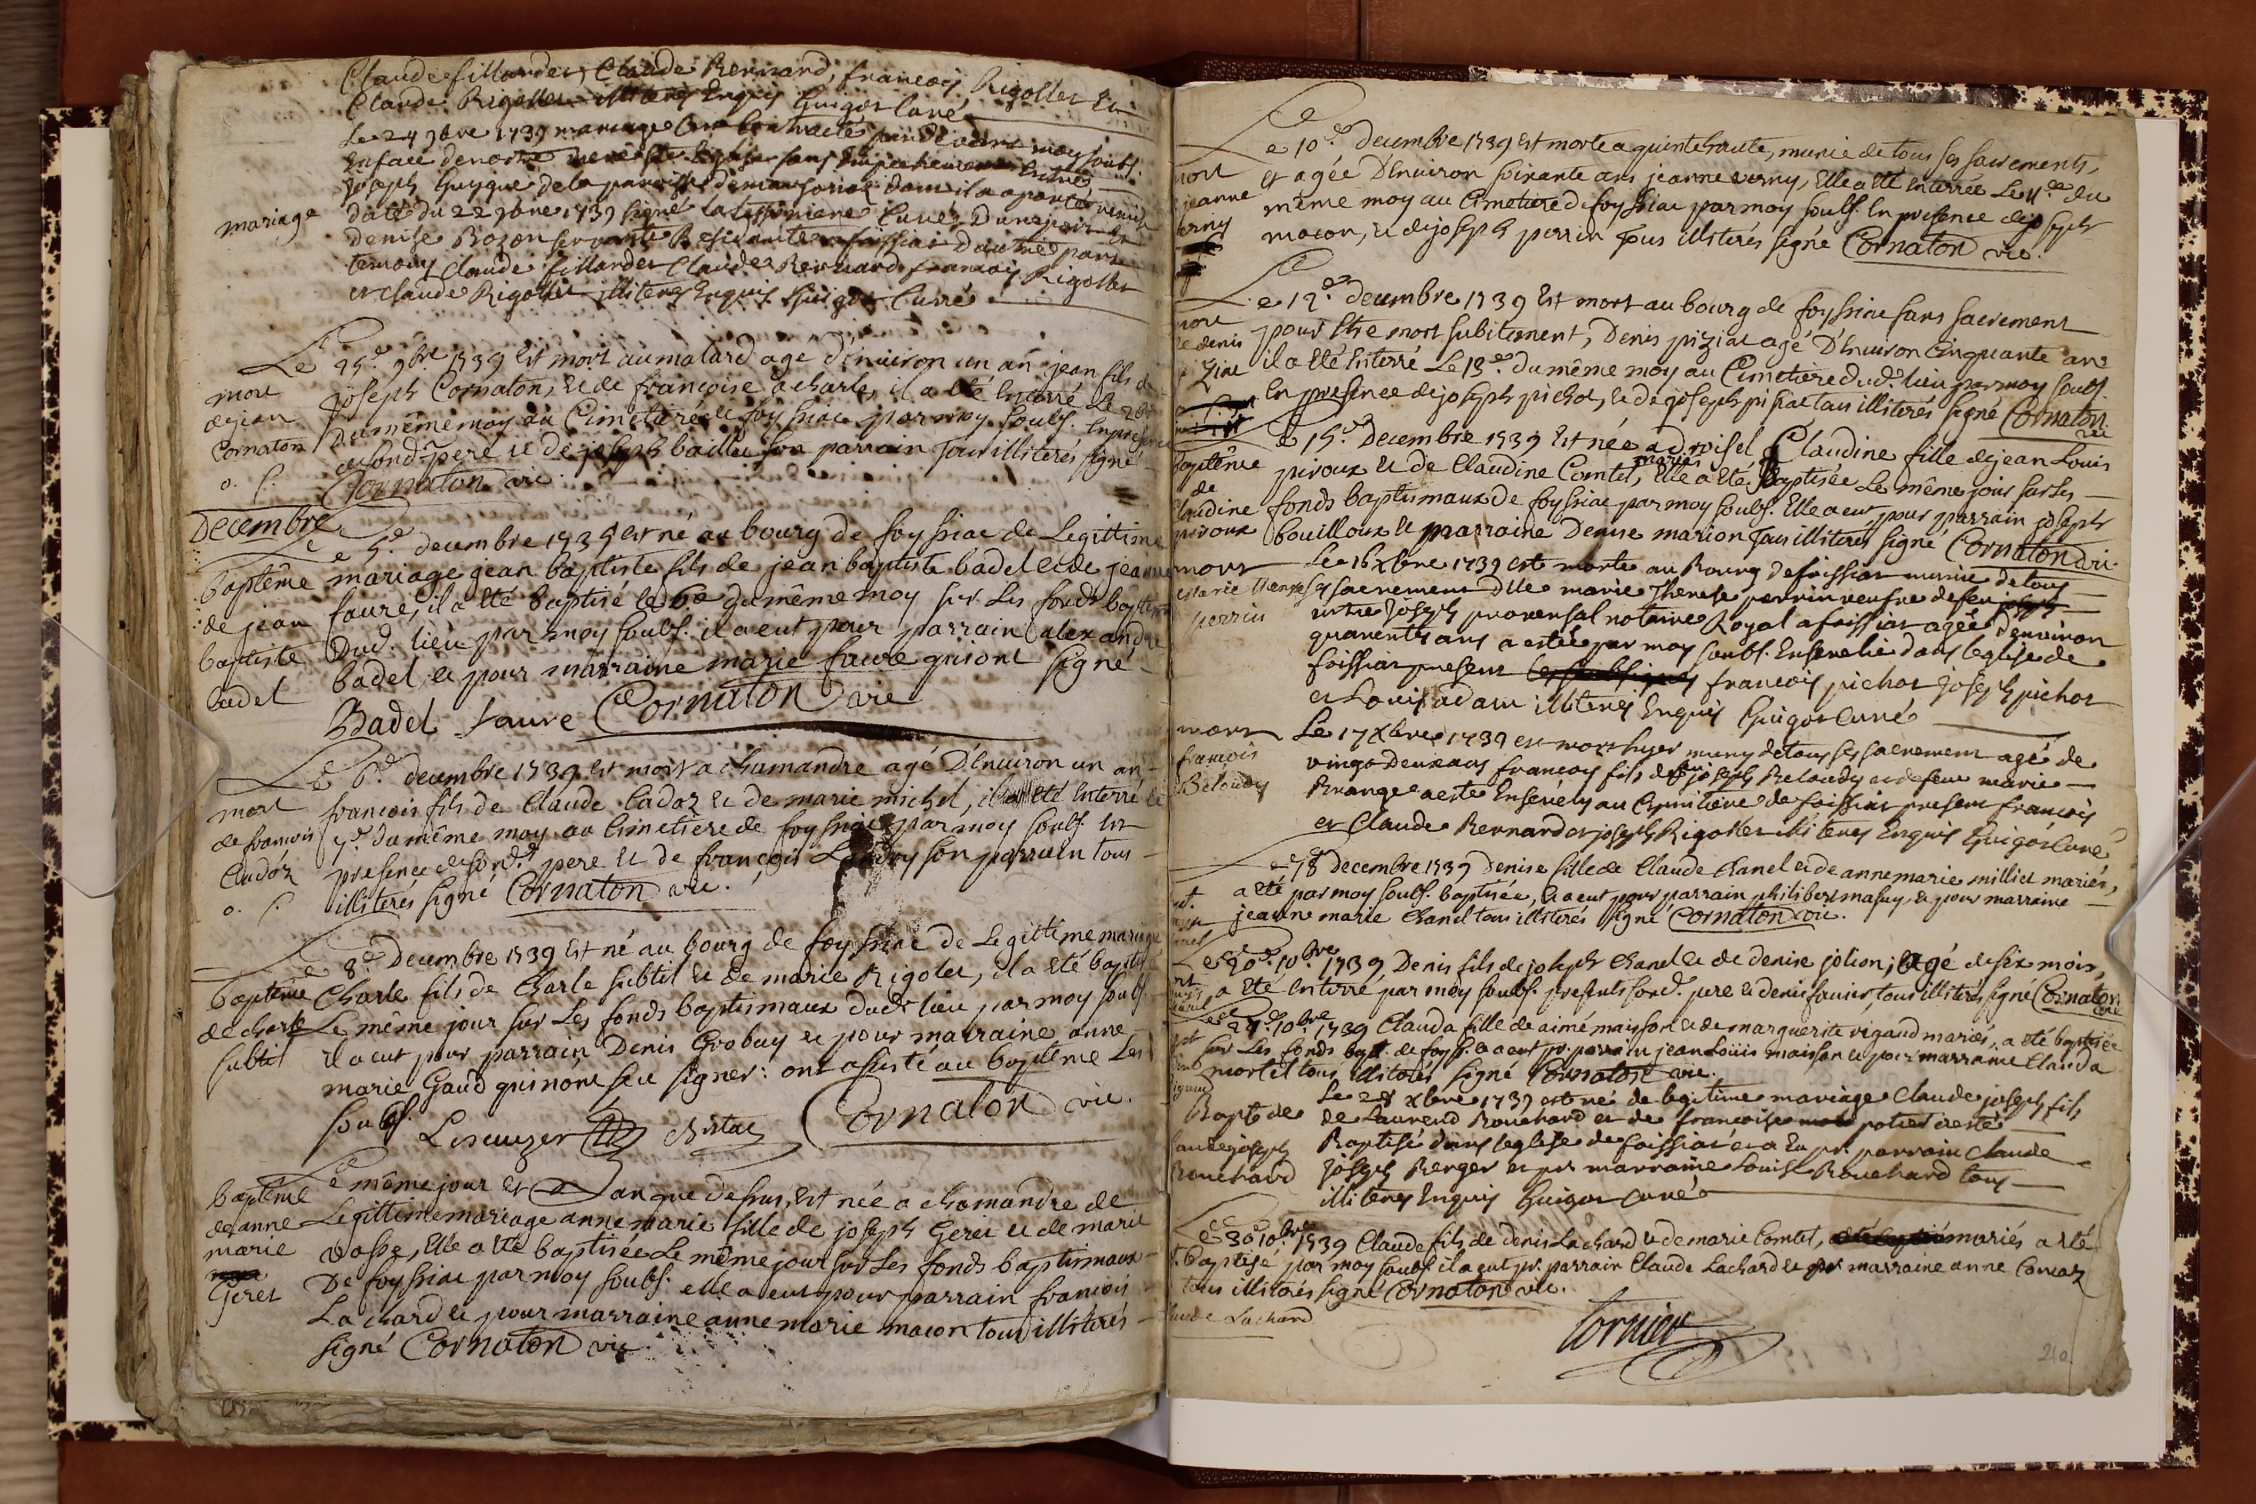 Claude fillardet, Claude Bernard, francois Rigollet Et
Claude Rigollet illiteres Enquis Guigot Curé
Le 24 9bre 1739 mariage a été Contracté pardevant moy soubs.
En face de notre mere Ste Eglise sans Empechement Entre
Joseph Guygue de la paroisse de dont il a aporté remise
mariage
daté du 22 9bre 1739 signé Curé, D'une part Et
Denise Bozon servante Residante a foissiat D'autre part
temoins Claude fillardet Claude Bernard francois Rigollet
et Claude Rigollet illiteres Enquis Guigot Curé
Le 25e 9bre 1739 Est mort au matard agé d'Enuiron un an jean fils de
mort
de jean
Cornaton
o. f.
joseph Cornaton, et de francoise acharle, il a été Enterré Le 26e
Du même moy au Cimetiere de foyssiac par moy soubs. En presence
de sond. pere et de joseph baillet son parrain Tous illiterés signé
Cornaton vic.
Decembre
Le 5e decembre 1739 est né au bourg de foyssiac de Legittime
baptême
de jean
baptiste
badel
mariage jean baptiste fils de jean baptiste badel et de jeanne
faure, il a été baptisé le 6e du même moy sur Les fonds baptism
Dud. lieu par moy soubs. il a eut pour parrain alexandre
badel, et pour marraine marie faure qui ont signé
Badel faure Cornaton vic
Le 6e decembre 1739 Est mort a chamandre agé D'Enuiron un an
mort
de francois
Cadoz
o. f.
francois fils de Claude Cadoz et de marie michel, il a été Enterré le
7e du même moy au Cimetiere de foyssiac par moy soubs. En
presence de sond. pere et de francois Landry son parrain tous
illiterés signé Cornaton vic.
Le 8e Decembre 1739 Est né au bourg de foyssiac de Legittime mariage
baptême
de charle
subtil
Charle fils de Charle subtil et de marie Rigolet, il a été baptisé
Le même jour sur Les fonds baptismaux dud. lieu par moy soubs.
il a eut pour parrain Denis Grobuy et pour marraine anne
marie Gaud qui nont sceu signer: ont assisté au baptême Les
soubs. Cornaton vic.
Le même jour et an que dessus, Est née a chamandre de
baptême
de anne
marie
Geret
Legittime mariage anne marie fille de joseph Geret et de marie
vosse, Elle a été baptisée Le même jour sur Les fonds baptismaux
De foyssiac par moy soubs. elle a eut pour parrain francois
Lachard et pour marraine anne marie macon tous illiterés
signé Cornaton vic.
Le 10e Decembre 1739 Est morte a quintehaute, munie de tous ses sacremens,
mort
jeanne
verny
et agée D'Enuiron soixante ans jeanne verny, Elle a été Enterrée Le 11e du
même moy au Cimetiere de foyssiac par moy soubs. En presence de joseph
macon, et de joseph perrin Tous illiterés signé Cornaton vic.
Le 12e Decembre 1739 Est mort au bourg de foyssiac sans sacrement
mort
de denis
piziat
pour Etre mort subitement, Denis piziat agé D'Enuiron Cinquante ans
il a été Enterré Le 13e du même moy au Cimetiere dud. lieu par moy soubs.
En presence de joseph pichot, et de joseph piziat tous illiterés signé Cornaton
vic
Le 15e Decembre 1739 Est née a droisel Claudine fille de jean Louis
baptême
de
Claudine
piroux
piroux et de Claudine Comtet, mariés Elle a été baptisée Le même jour sur Les
fonds baptismaux de foyssiac par moy soubs. Elle a eut pour parrain joseph
bouilloux et marraine Denise marion Tous illiterés signé Cornaton vic.
mort
marie Therese
perrin
Le 16 Xbre 1739 est morte au Bourg de foissiat munie de tous
ses sacrement Dlle marie Therese perrin veufve de feu
Joseph provensal notaire Royal a foissiat agée d'enuiron
quarente ans a estée par moy soubs. Ensevelie dans leglise de
foissiat present francois pichot Joseph pichot
et Louis adam illiteres Enquis Guigot Curé
mort
francois
Beloudy
Le 17 Xbre 1739 est mort hyer muny de tous ses sacrement agé de
vingt Deux ans francois fils de feu joseph Beloudy et de feue marie
Brange a esté Enseuely au Cymitiere de foissiat present francois
et Claude Bernard et joseph Rigollet illiteres Enquis Guigot Curé
Le 18e decembre 1739 Denise fille de Claude Chanel et de anne marie milliet mariés,
a été par moy soubs. baptisée, et a eut pour parrain philibert masuy, et pour marraine
jeanne marie Chanel tous illiterés signé Cornaton vic.
Le 20e 10bre 1739 Denis fils de joseph Chanel et de denise jolion, agé de six mois,
a été Enterré par moy soubs. presents sond. pere et denis fauier, tous illiterés signé Cornaton
vic
Le 24e 10bre 1739 Clauda fille de aimé maisson et de marguerite rigaud mariés, a été baptisée
sur Les fonds bapt. de foyss. et a eut pr. parrain jean Louis maisson et pour marraine Clauda
mortel tous illiterés signé Cornaton vic.
Bapt de
Claude joseph
Bouchard
Le 28 Xbre 1739 est né de legitime mariage Claude joseph fils
de Laurend Bouchard et de francoise potier a esté
Baptisé dans leglise de foissiat et a Eu pr. parrain Claude
Joseph Berger et pr. marraine Louise Bouchard tous
illiteres Enquis Guigot Curé
Le 30e 10bre 1739 Claude fils de denis Lachard et de marie Comtet, mariés a été
baptisé par moy soubs. il a eut pr. parrain Claude Lachard et pr. marraine anne
tous illiterés signé Cornaton vic.
Claude Lachard
210.